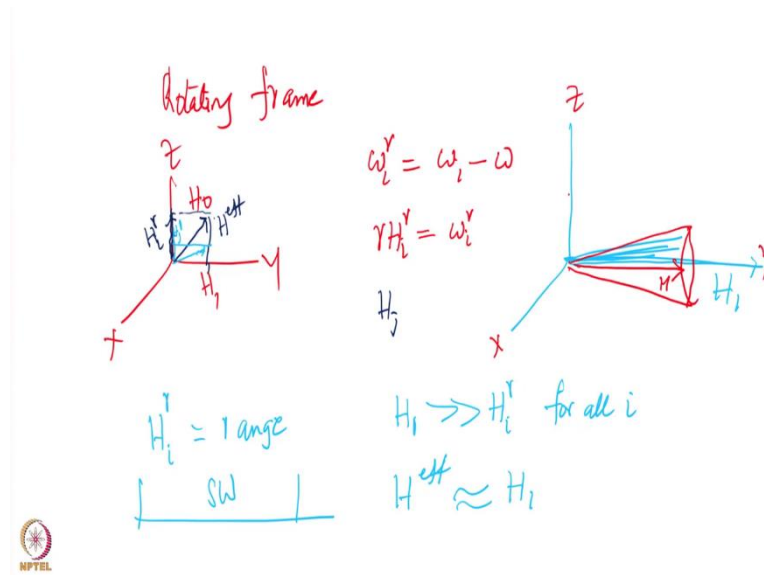 Rotating frame
Z
H₀
Hᵢʳ
H^eff
H₁
Y
X
ωᵢʳ = ωᵢ - ω
γHᵢʳ = ωᵢʳ
Hⱼ
Z
M
H₁
Y
X
Hᵢʳ = range
SW
H₁ >> Hᵢʳ for all i
H^eff ≈ H₁
NPTEL